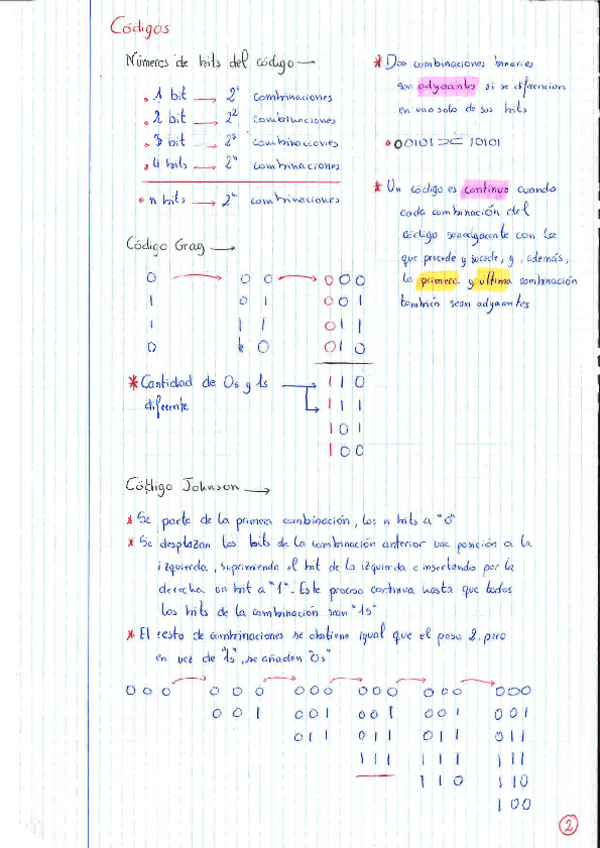 Códigos
Números de bits del código →
. 1 bit → 2¹ combinaciones
. 2 bit → 2² combinaciones
. 3 bit → 2³ combinaciones
. 4 bits → 2⁴ combinaciones
. n bits → 2ⁿ combinaciones
* Dos combinaciones binaries
son adyacentes si se diferencian
en uno solo de sus bits
• 00101 ⊃⊂ 10101
* Un código es continuo cuando
cada combinación del
código sea adyacente con la
que precede y sucede, y, además,
la primera y última combinación
también sean adyacentes
Código Gray →
0 → 00 → 000
1 01 001
1 11 011
0 10 010
* Cantidad de 0s y 1s → 110
diferente → 111
101
100
Código Johnson →
* Se parte de la primera combinación, los n bits a "0"
* Se desplazan los bits de la combinación anterior una posición a la
izquierda, suprimiendo el bit de la izquierda e insertando por la
derecha un bit a "1". Este proceso continua hasta que todos
los bits de la combinación sean "1s"
* El resto de combinaciones se obtiene igual que el paso 2, pero
en vez de "1s", se añaden "0s"
000 → 000 → 000 → 000 → 000 → 000
001 001 001 001 001
011 011 011 011
111 111 111
110 110
100
2